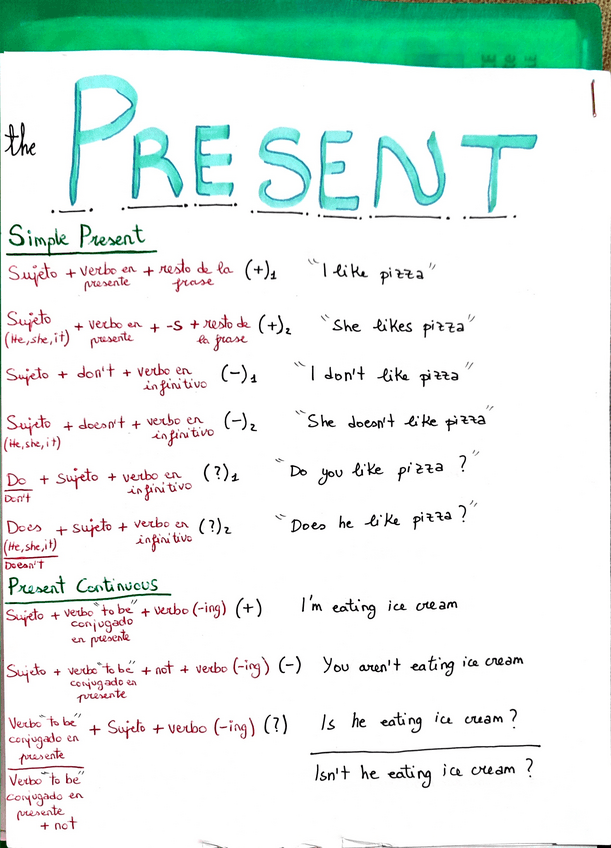 the PRESENT
Simple Present
Sujeto + verbo en presente + resto de la frase (+)1 "I like pizza"
Sujeto (He, she, it) + verbo en presente + -s + resto de la frase (+)2 "She likes pizza"
Sujeto + don't + verbo en infinitivo (-)1 "I don't like pizza"
Sujeto (He, she, it) + doesn't + verbo en infinitivo (-)2 "She doesn't like pizza"
Do Don't + sujeto + verbo en infinitivo (?)1 "Do you like pizza ?"
Does (He, she, it) Doesn't + sujeto + verbo en infinitivo (?)2 "Does he like pizza ?"
Present Continuous
Sujeto + verbo "to be" conjugado en presente + verbo (-ing) (+) I'm eating ice cream
Sujeto + verbo "to be" conjugado en presente + not + verbo (-ing) (-) You aren't eating ice cream
Verbo "to be" conjugado en presente + Sujeto + verbo (-ing) (?) Is he eating ice cream ?
Verbo "to be" conjugado en presente + not Isn't he eating ice cream ?